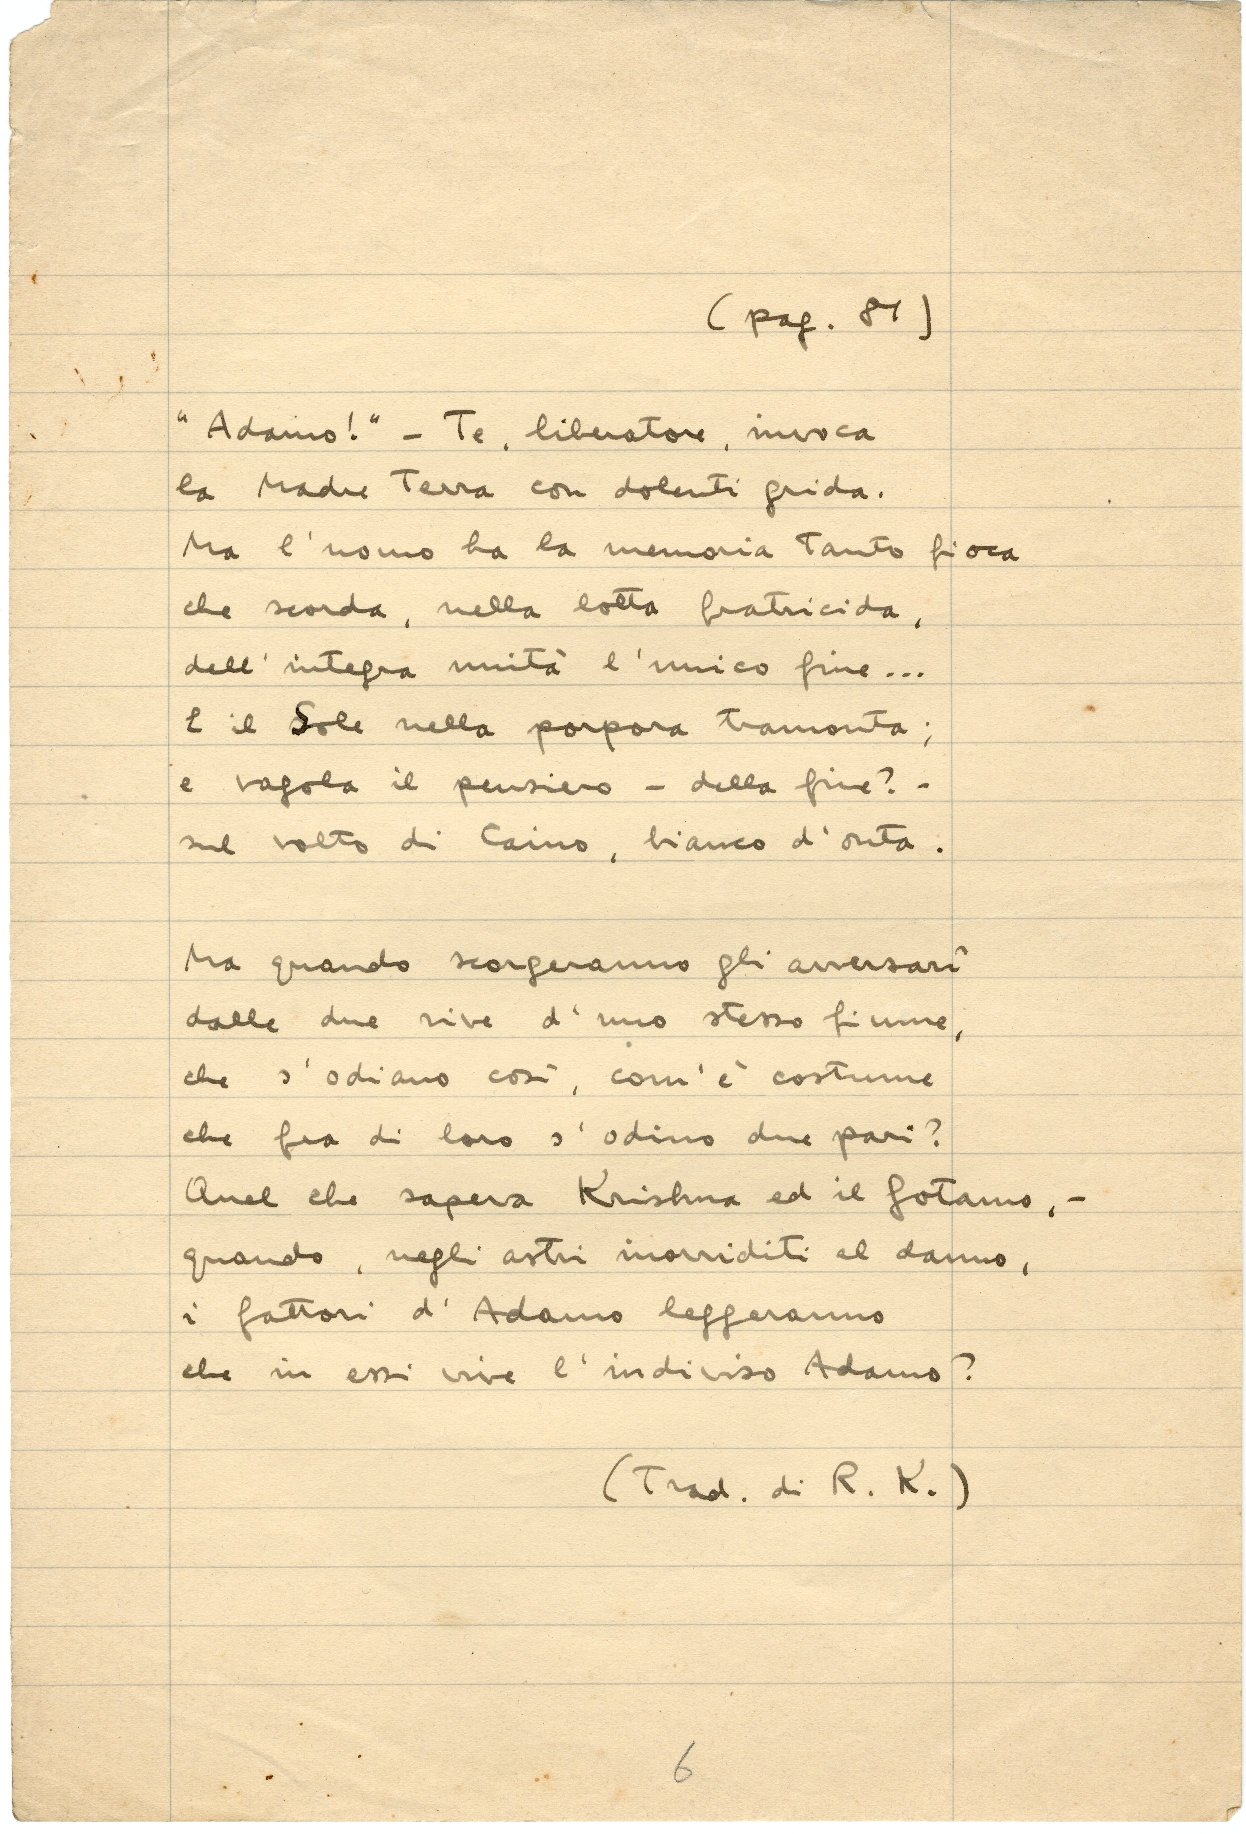 (pag. 81)
"Adamo!" - Te, liberatore, invoca
la Madre Terra con dolenti grida.
Ma l'uomo ha la memoria tanto fioca
che scorda, nella lotta fratricida,
dell'integra unità l'unico fine...
E il Sole nella porpora tramonta;
e vagola il pensiero - della fine? -
sul volto di Caino, bianco d'onta.
Ma quando scorgeranno gli avversarî
dalle due rive d'uno stesso fiume,
che s'odiano così, com'è costume
che fra di loro s'odino due pari?
Quel che sapeva Krishna ed il Gotamo, -
quando, negli astri inorriditi al danno,
i fattori d'Adamo leggeranno
che in essi vive l'indiviso Adamo?
(Trad. di R. K.)
6